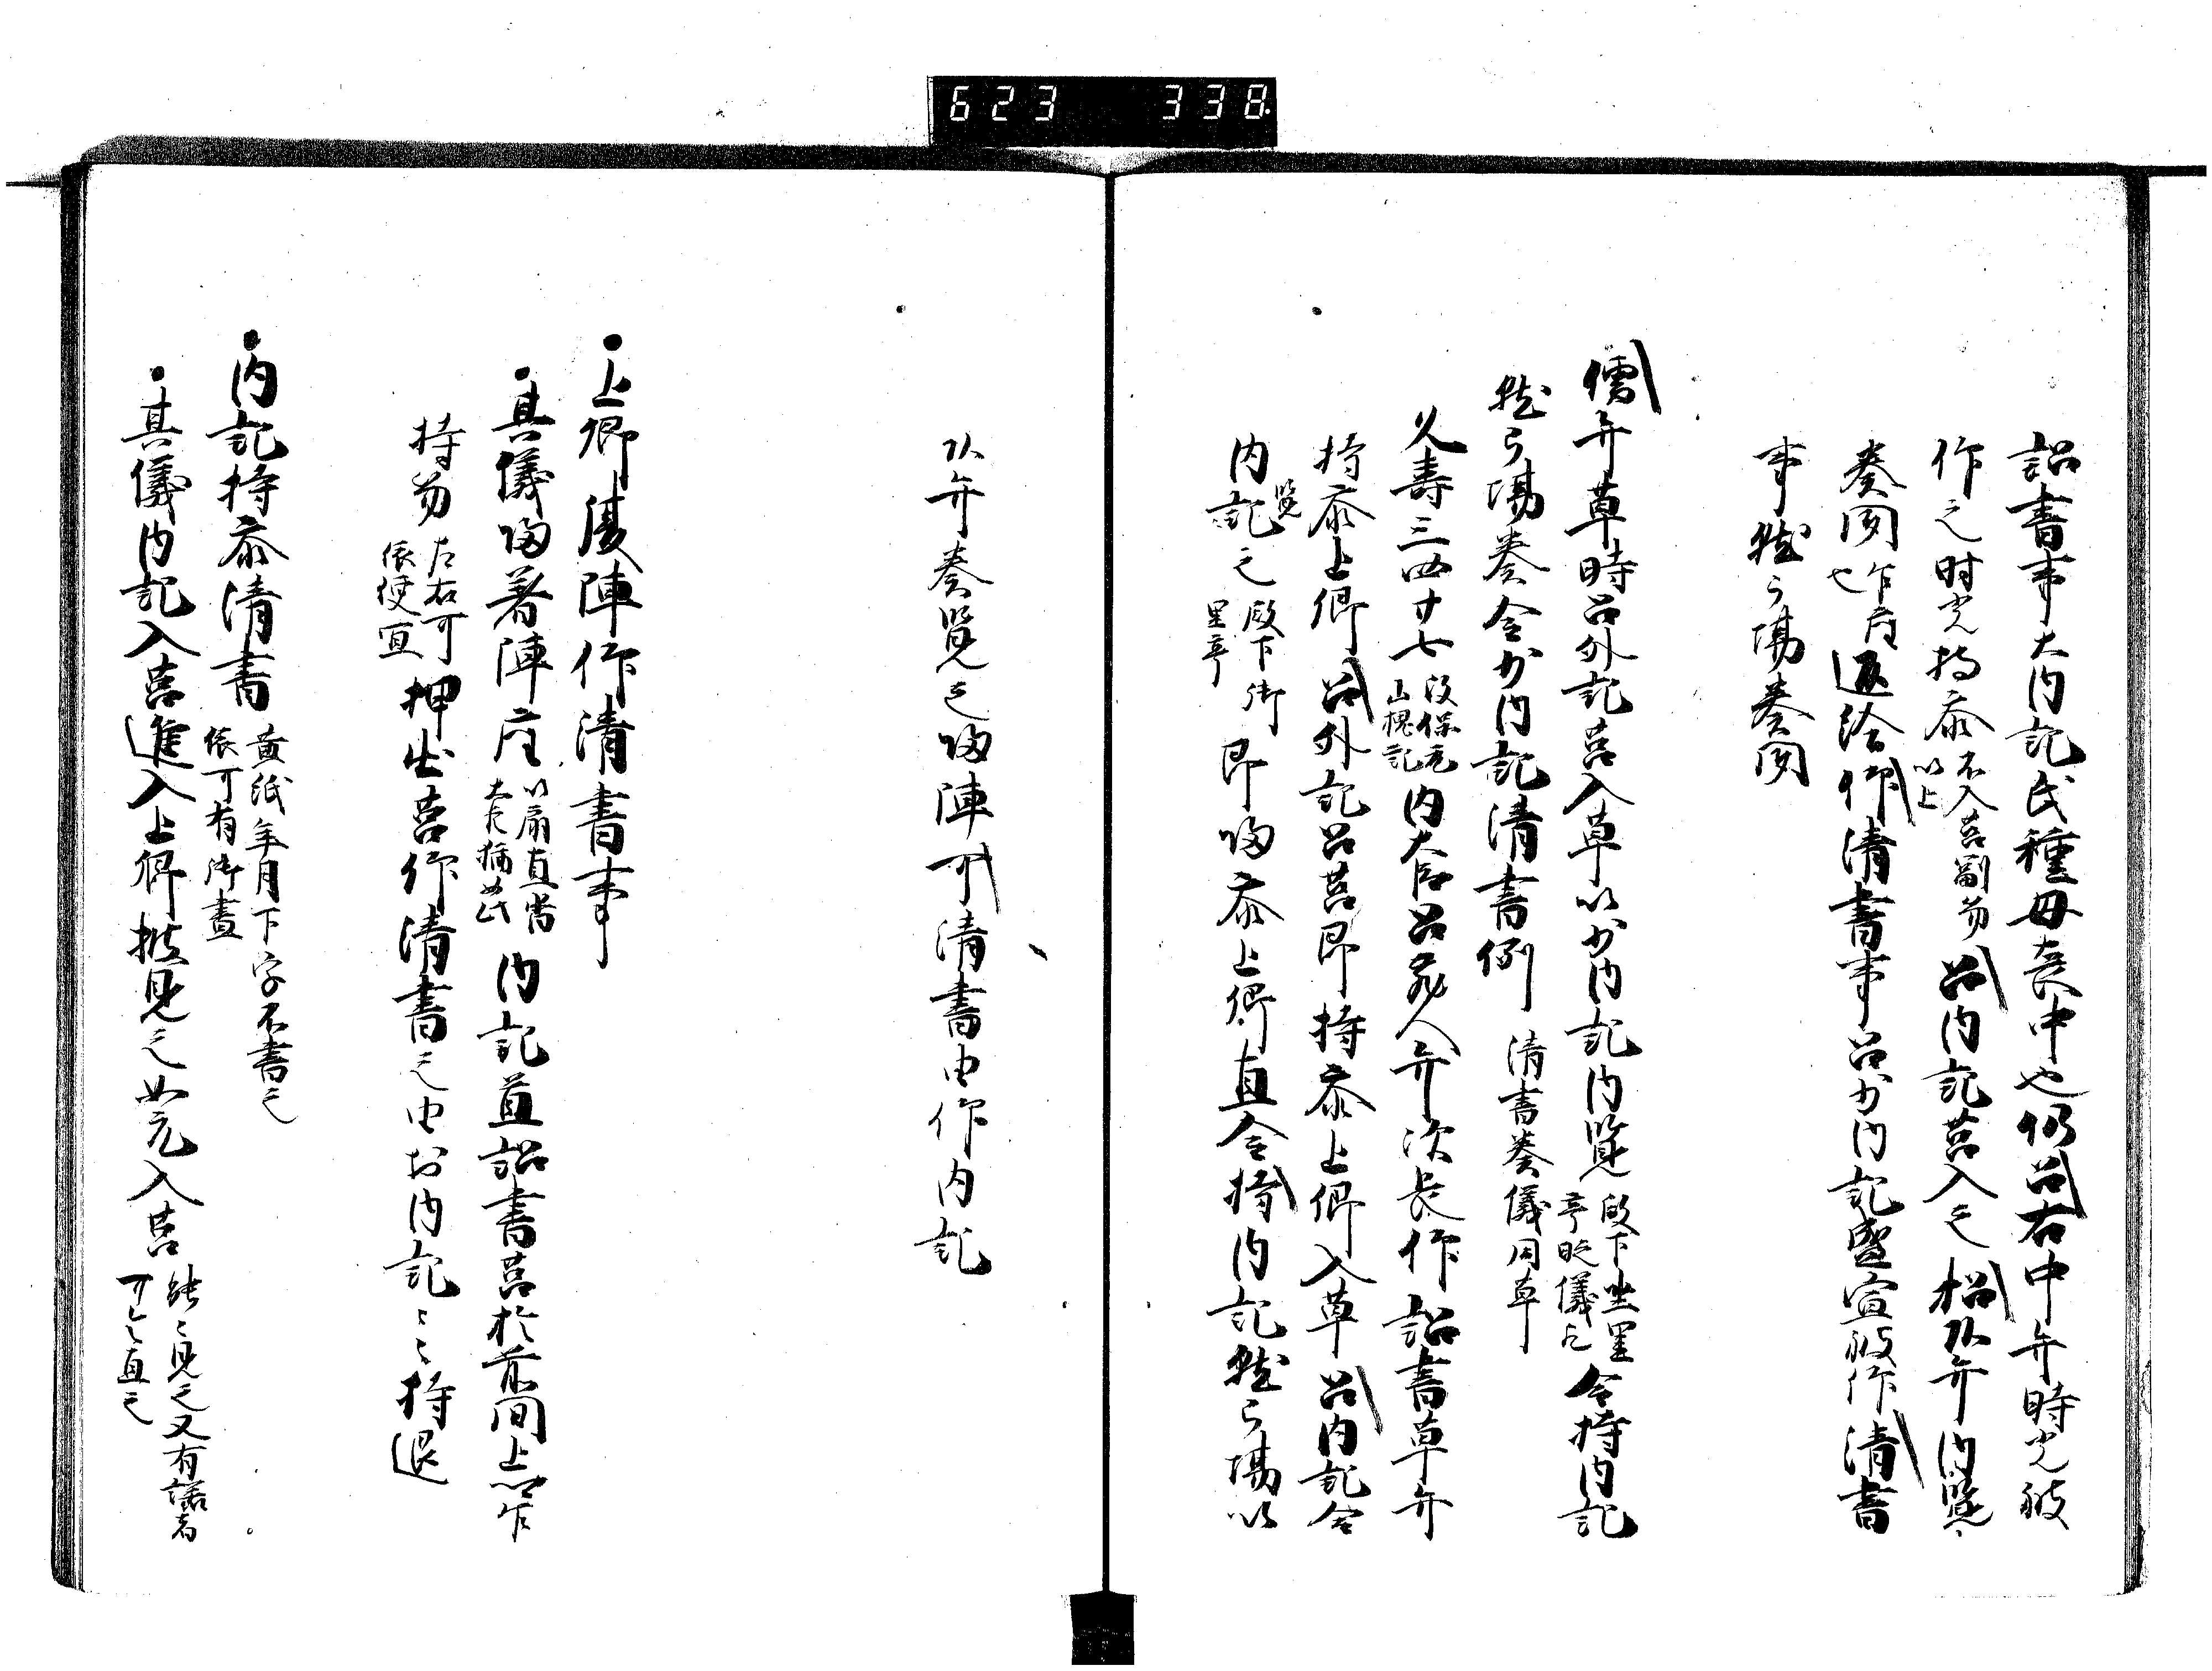 623 338
詔書事大内記氏種母喪中也仍召右中弁時光被
作之時光持参不入莒副笏以上召内記莒入之招弘弁内覧
奏聞乍座也返給仰清書事召少内記盛宣被作清書
事就弓場奏聞
儒弁草時召外記莒入草以少内記内覧殿下坐里亭时儀也令持内記
就弓場奏令少内記清書例 清書奏儀同草
久寿三四廿七改保元山槐記内大臣召蔵人弁次長作詔書草弁
持参上卿召外記召莒即持参上卿入草召内記令
覧
内記之殿下御里亭即帰参上卿直令持内記就弓場以
弘弁奏覧之帰陣可清書由仰内記
上卿復陣仰清書事
其儀帰著陣座以扇直沓内記置詔書莒於前間上卿乍
持笏左右可依便宜押出莒仰清書之由於内記々持退
内記持参清書黄紙年月下字不書之依可有御畫
其儀内記入莒進入上卿披見之如元入莒能々見之又有誤者可令直之